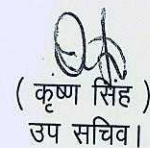 ( कृष्ण सिंह )
उप सचिव।